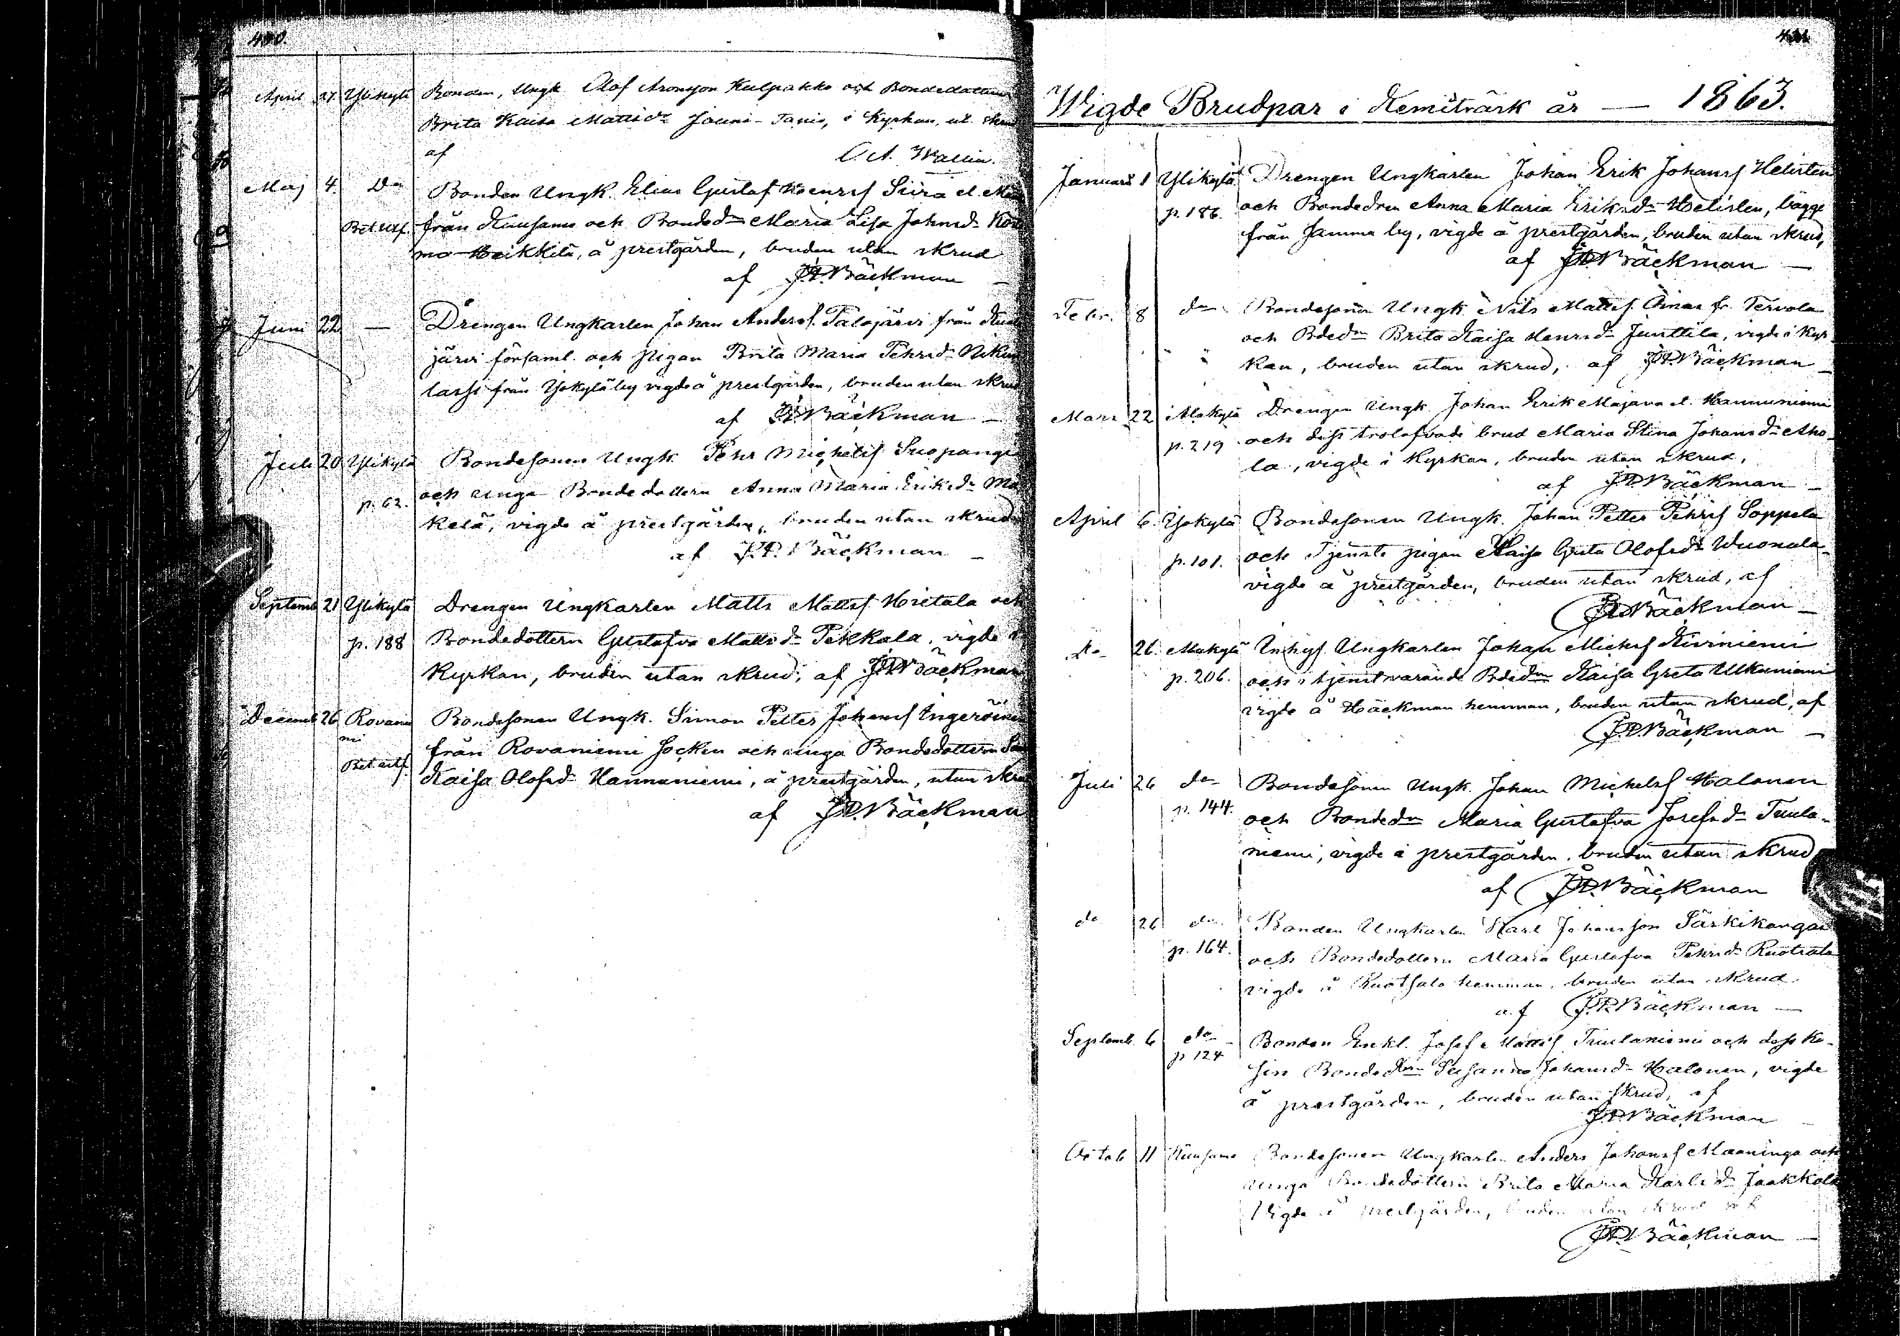 480.
April 27 Ylikylä Bonden, Ungk. Olof Aronsson Kulpakko och Bondedottern
Brita Kaisa Mattsdr Jauni-Tanis, i Kyrkan, ut. skrud
af Oct. Wallin.
Maj 4. Do Bonden Ungk. Elias Gustaf Henrsf Siira
Bet. utf. från Kuusamo och Bondedn Maria Lisa Johansd.
mo-Heikkilä, å prestgården, bruden utan skrud
af J.P. Bäckman —
Juni 22 — Drengen Ungkarlen Johan Andersf. Talojärvi från
järvi församl. och pigan Brita Maria Pehrsd.
lassi från Ysokylä by vigde å prestgården, bruden utan skrud
af J.P. Bäckman —
Juli 20 Ylikylä Bondesonen Ungk. Pehr Michelsf. Suopangi
p. 62. och unga Bondedottern Anna Maria Eriksd. Mä
kelä, vigde å prestgården, bruden utan skrud
af J.P. Bäckman —
Septemb. 21 Ylikylä Drengen Ungkarlen Matts Mattsf Hietala och
p. 188 Bondedottern Gustafva Mattsd. Pekkala, vigde i
Kyrkan, bruden utan skrud, af J.P. Bäckman
Decemb. 26 Rovanie Bondesonen Ungk. Simon Petter Johansf Ingeröinen
mi från Rovaniemi Socken och unga Bondedottern
Bet. utf. Kaisa Olofsd. Hannuniemi, å prestgården, utan skrud
af J.P. Bäckman
Wigde Brudpar i Kemiträsk år — 1863.
Januari 1 Ylikylä Drengen Ungkarlen Johan Erik Johansf Helisten
p. 186. och Bondedren Anna Maria Eriksd. Helisten, bägge
från samma by, vigde å prestgården, bruden utan skrud,
af J.P. Bäckman —
Febr. 8 do Bondesonen Ungk. Nils Mattsf. Oinas fr. Tervola
och Bdedn Brita Kaisa Henrsd. Junttila, vigde i Kyr-
kan, bruden utan skrud, af J.P. Bäckman —
Mars 22 Alakylä Drengen Ungk. Johan Erik Majava el. Hannuniemi
p. 219 och dess trolofvade brud Maria Stina Johansd. Aho-
la, vigde i Kyrkan, bruden utan skrud,
af J.P. Bäckman —
April 6. Ysokylä Bondesonen Ungk. Johan Petter Pehrsf Soppela
p. 101. och Tjenste pigan Kaisa Greta Olofsdr Wuonala
vigde å prestgården, bruden utan skrud, af
J.P. Bäckman —
do 26 Alakylä Inhys. Ungkarlen Johan Michelsf Kiviniemi
p. 206. och i tjenst varande Bdedn Kaisa Greta Ulkuniemi
vigde å Häckman hemman, bruden utan skrud, af
J.P. Bäckman —
Juli 26 do Bondesonen Ungk. Johan Michelsf Halonen
p. 144. och Bondedn Maria Gustafva Josefsd. Tuula-
niemi, vigde å prestgården, bruden utan skrud
af J.P. Bäckman
do 26 do Bonden Ungkarlen Karl Johansson Särkikangas
p. 164. och Bondedottern Maria Gustafva Pehrsd. Ruotsala
vigde å Ruotsala hemman, bruden utan skrud
af J.P. Bäckman —
Septemb. 6 do Bonden Enkl. Josef Mattsf Tuulaniemi och dess Ku-
p 124 sin Bondedn Susanna Johansd. Halonen, vigde
å prestgården, bruden utan skrud, af
J.P. Bäckman —
Octob. 11 Kuusamo Bondesonen Ungkarlen Anders Johansf Maaninga och
unga Bondedottern Brita Maria Karlsd. Jaakkola
Vigde å prestgården, bruden utan skrud af
J.P. Bäckman —